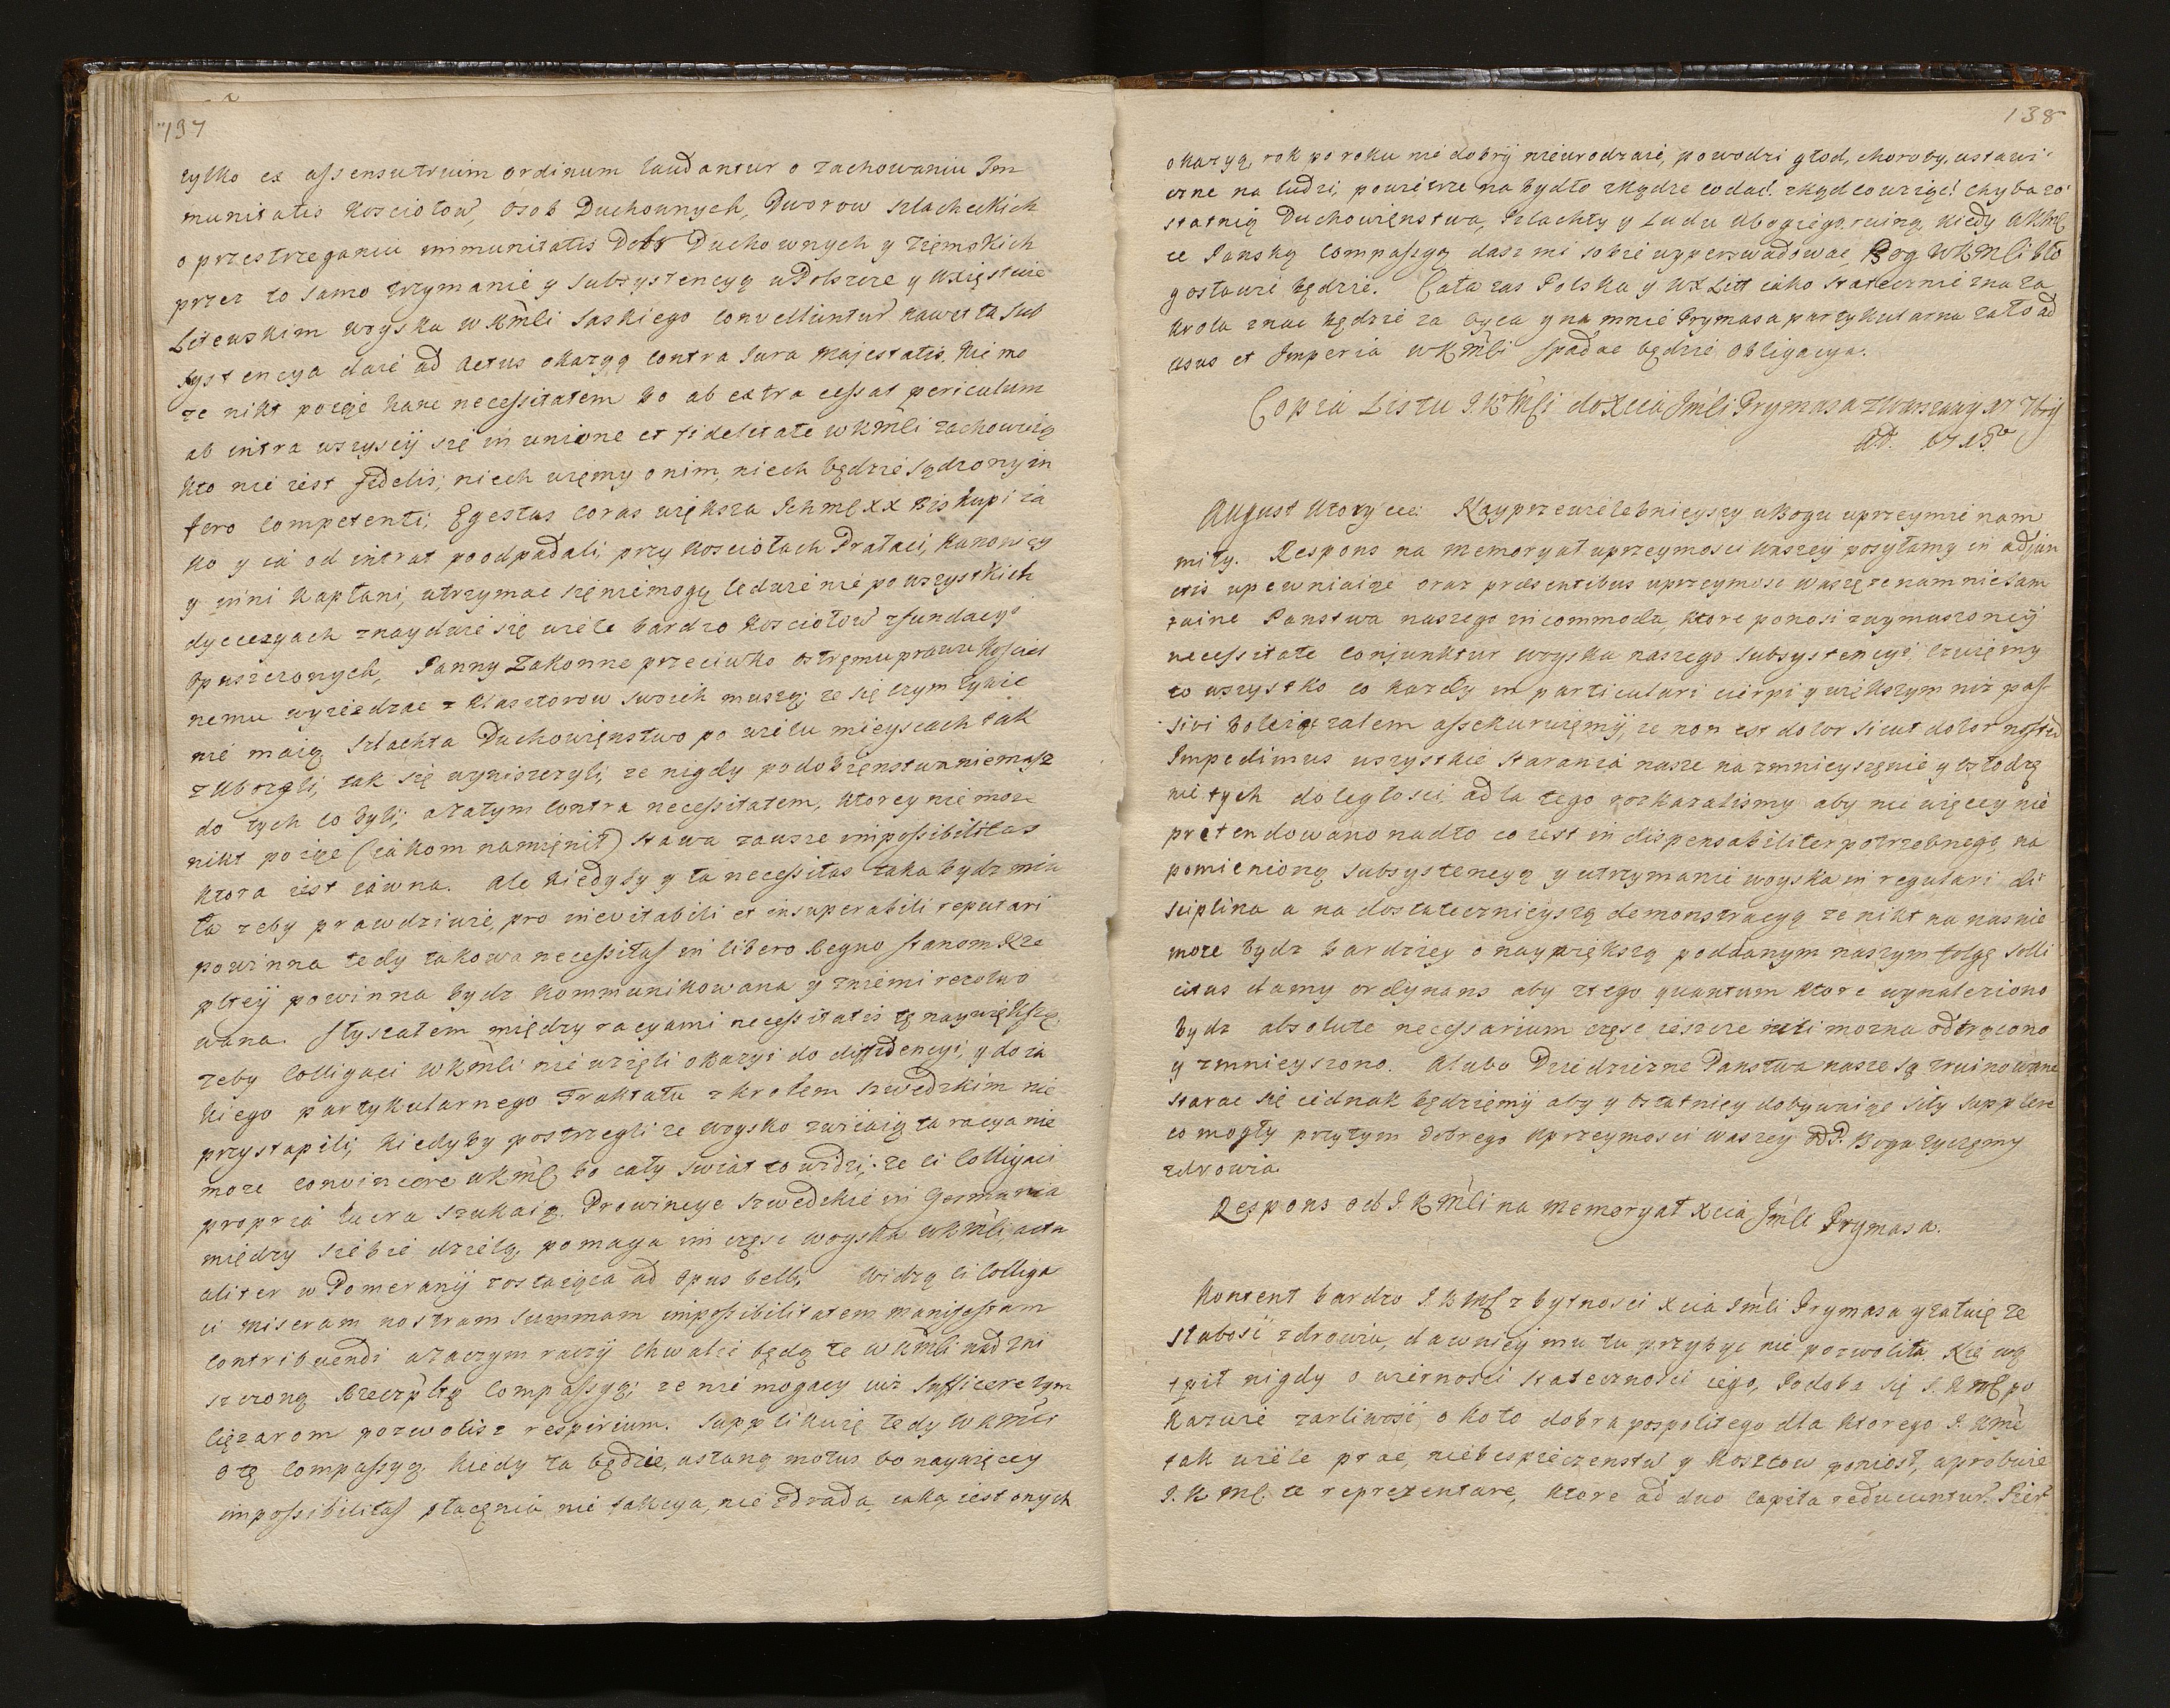 137
tylko ex assensu trium ordinum laudantur o zachowaniu Im
munitatis Kosciołow, osob Duchownych, Dworow szlacheckich
o przestrzeganiu immunitatis Dobr Duchownych y Ziemskich
przez to samo trzymanie y subsystencyą w Polszcze y W Xięstwie
Litewskim woyska WKMsci Saskiego convelluntur nawet ta sub
systencya daie ad actus okazyą contra Jura Majestatis. Nie mo
ze nikt poięc hanc necessitatem bo ab extra cessat periculum
ab intra wszyscy się in unione et fidelitate WKMsci zachowuią
kto nie iest fidelis, niech wiemy o nim, niech będzie sądzony in
foro competenti; Egestas coraz większa Ichmsc XX Biskupi ia
ko y ia od intrat poodpadali, przy Kosciołach Prałaci, Kanonicy
y inni Kapłani, utrzymac się nie mogą ledwie nie po wszystkich
dyecezyach znayduie się wiele bardzo Kosciołow z fundacyi
opuszczonych, Panny Zakonne przeciwko ostremu prawu Kosciel
nemu wyiezdzac z Klasztorow swoich muszą, ze się czym zywic
nie maią Szlachta Duchowienstwo po wielu mieyscach tak
zubozeli, tak się wyniszczyli, ze nigdy podobienstwa nie masz
do tych co byli; a zatym contra necessitatem, ktorey nie moze
nikt poiąc (iakom namienił) stawa zawsze impossibilitas
ktora iest iawna. Ale kiedyby y ta necessitas taka bydz mia
ła zeby prawdziwie, pro inevitabili et insuperabili reputari
powinna tedy takowa necessitas in libero Regno Stanom Rze
pltey powinna bydz kommunikowana y z niemi rezolwo
wana. Słyszałem między racyami necessitatis tę naywiększą,
zeby Colligaci WKMsci nie wzięli okazyi do diffidencyi, y do ia
kiego partykularnego Traktatu z Krolem Szwedzkim nie
przystąpili, kiedyby postrzegli ze woysko zwiiaią ta racya nie
moze convincere WKMsc bo cały swiat to widzi, ze ci Colligaci
propria lucra szukaią. Prowincye Szwedzkie in Germania
między siebie dzielą, pomaga im częsc woyska WKMsci, actu
aliter w Pomeranij zostaiąca ad opus belli. Widzą ci Colliga
ci miseram nostram summam impossibilitatem manifestam
contribuendi a zaczym raczy chwalic będą te WKMsci nad zni
szczoną Rzeczpltą Compassyą; ze nie mogacy iuz sufficere tym
cięzarom pozwolisz respirium. Supplikuię tedy WKMsci
o tę Compassyą, kiedy ta będzie, ustaną motus bo naywięcey
impossibilitas płacenia, nie fakcya, nie zdrada, iaka iest onych
138
okazyą, rok po roku nie dobry nieurodzaie, powodzi głod, choroby, ustawi-
czne na ludzi, powietrze na bydło zkądze co dac! zkąd co wziąc! chyba zo-
statnią Duchowienstwa, Szlachty y Ludu ubogiego, ruiną, kiedy WKMsc
te Panską Compassyą dasz mi sobie wyperswadowac, Bog WKMsci bło
gosławic będzie. Cała zas Polska y WX Litt iako statecznie zna za
Krola znac będzie za oyca y na mnie Prymasa partykularna za to ad
usus et Imperia WKMsci spadac będzie obligacya.
Copia Listu JKMsci do Xcia Jmsci Prymasa z Warszawy
AD. 1715to
August Wtory ecc: Nayprzewielebnieyszy w Bogu uprzeymie nam
miły. Respons na memoryał uprzeymosci Waszey posyłamy in adjun
ctis upewniaiąc oraz præsentibus uprzeymosc Waszę ze nam nie tam
taine Panstwa naszego incommoda, ktore ponosi z wymuszoney
necessitate conjunktur woyska naszego subsystencyi. Czuiemy
to wszystko co kazdy in particulari cierpi y większym niz pas-
sivi boleią zalem assekuruiemy, ze non est dolor sicut dolor noster
Impedimus wszystkie starania nasze na zmnieyszenie y osłodze
nie tych doległosci, a dla tego rozkazalismy aby nic więcey nie
pretendowano nadto co iest in dispensabiliter potrzebnego, na
pomienioną subsystencyą y utrzymanie woyska in regulari di-
sciplina a na dostatecznieyszą demonstracyą ze nikt na nas nie
moze bydz bardziey o naywiększą poddanym naszym folgę solli
citus damy ordynans aby z tego quantum ktore wynaleziono
bydz absolute necessarium częsc ieszcze iesli mozna odtrącono
y zmnieyszono. A lubo Dziedziczne Panstwa nasze są zruinowane
starac się iednak będziemy aby y ostatniey dobywaiąc siły supplere
co mogły przytym dobrego uprzeymosci Waszey od P. Boga zyczemy
zdrowia
Respons od J.KMsci na memoryał Xcia Jmsci Prymasa.
Kontent bardzo J.KMsc z bytnosci Xcia Jmsci Prymasa y załuie ze
słabosc zdrowia, dawniey mu tu przybyc nie pozwoliła. Nie wą
tpił nigdy o wiernosci statecznosci iego, Podoba się J.KMsc po
kazuie zarliwosc, o koło dobra pospolitego dla ktorego J.KMsc
tak wiele prac, niebespieczenstw y kosztow poniosł, aprobuie
J.KMsc te reprezentare, ktore ad duo capita reducuntur. Pier